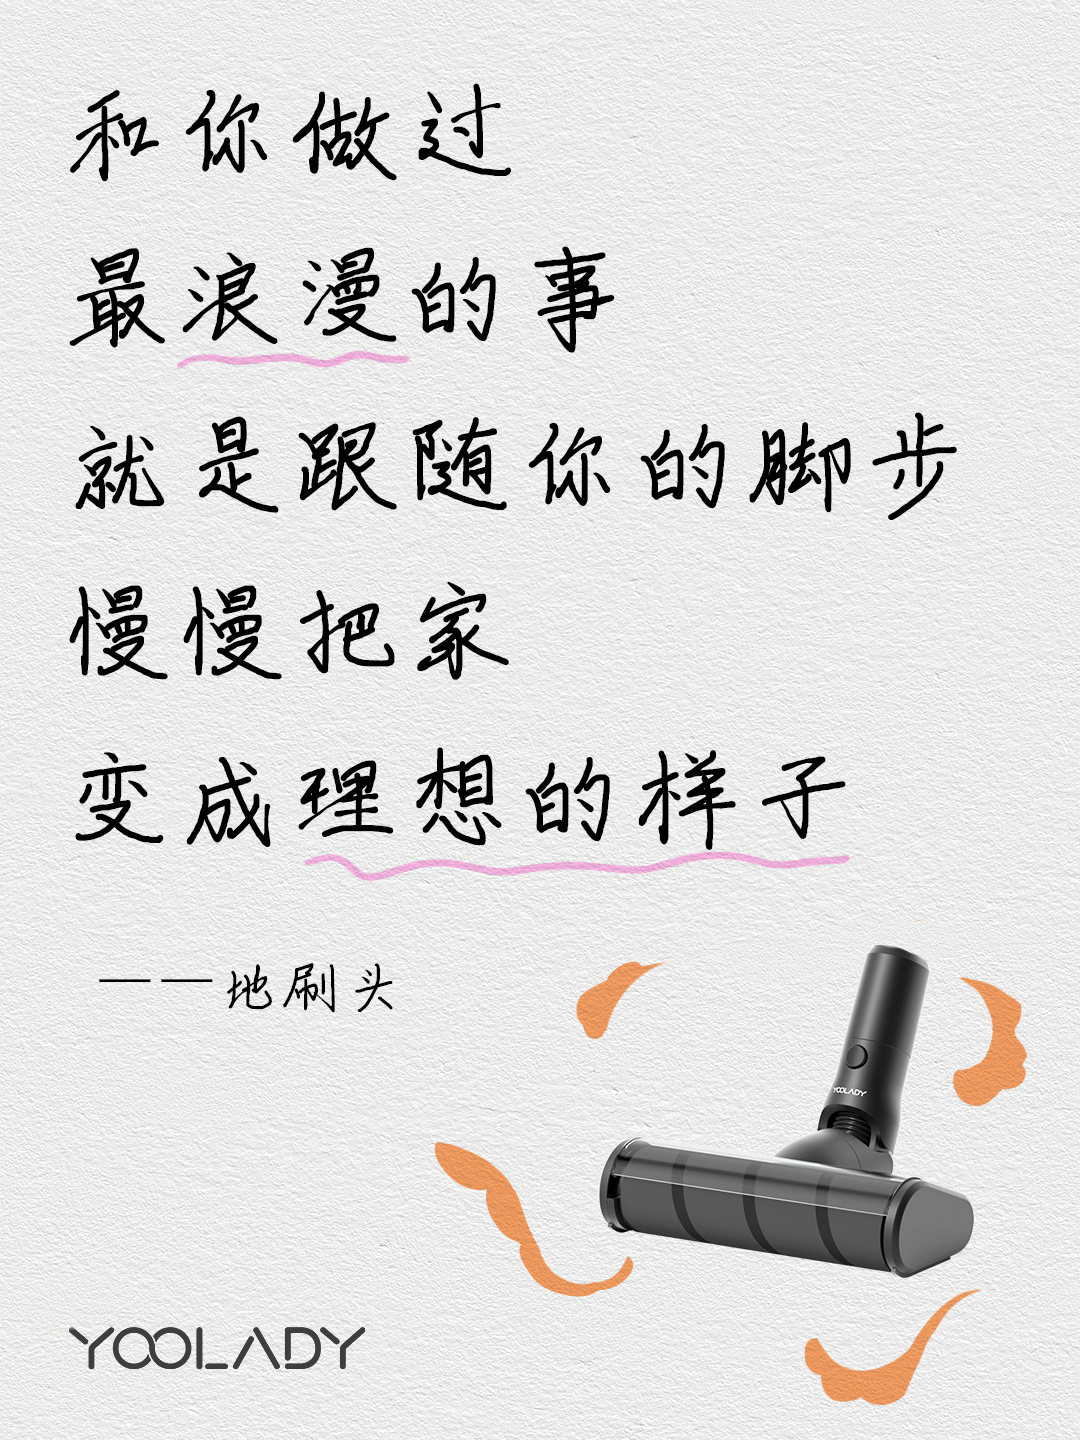 和你做过
最浪漫的事
就是跟随你的脚步
慢慢把家
变成理想的样子
——地刷头
YOOLADY
YOOLADY